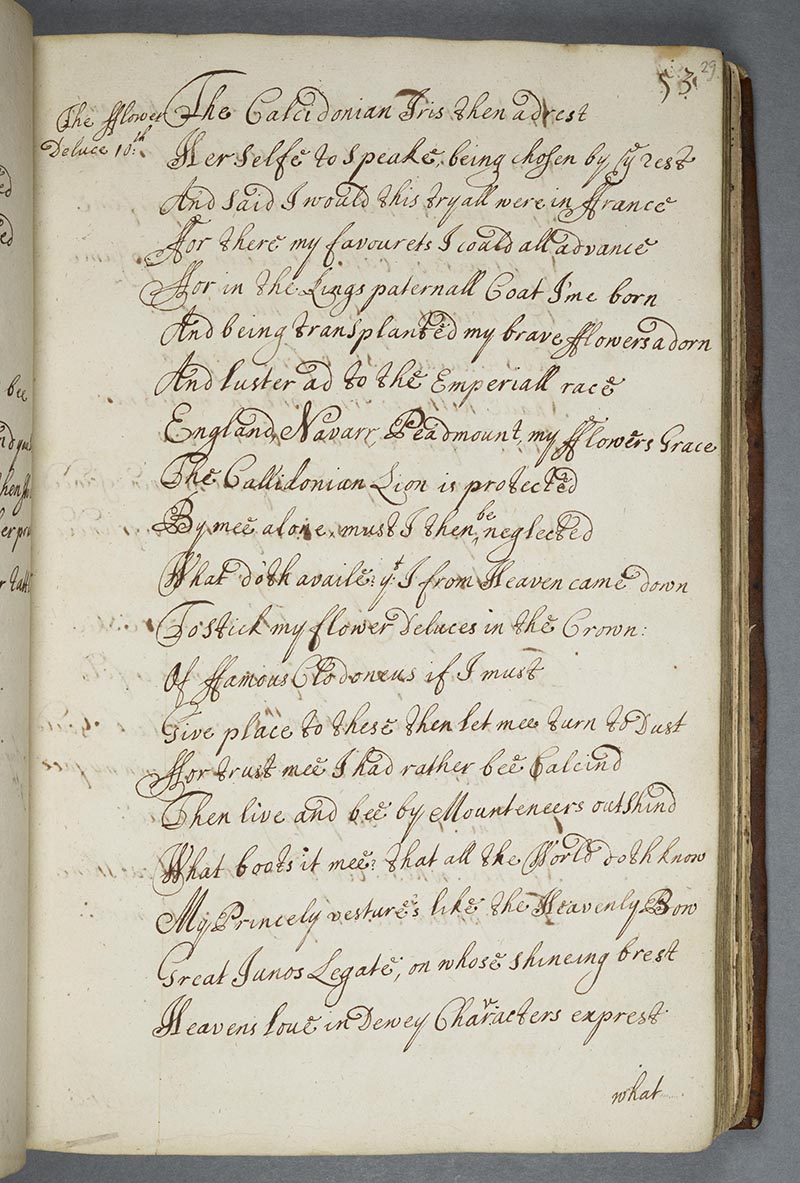 53
29
The fflower
Deluce 10:th
The Calcidonian Iris then adrest
Her selfe to speake, being chosen by ye rest
And said I would this tryall were in ffrance
ffor there my favourets I could all advance
ffor in the Kings paternall Coat I'me born
And being transplanted my brave fflowers adorn
And luster ad to the Emperiall race
England, Navarr, Peadmount, my fflowers Grace
The Callidonian Lion is protected
By mee alone, must I then be neglected
What doth availe: yt: I from Heaven came down
To stick my flower Deluces in the Crown:
Of ffamous Clodoneus if I must
Give place to these then let mee turn to Dust
ffor trust mee I had rather bee Calcind
Then live and bee by Mounteneers outshind
What boots it mee: that all the World doth know
My Princely vestures like the Heavenly Bow
Great Junos Legate, on whose shineing brest
Heavens love in Dewey Characters exprest
what
bee